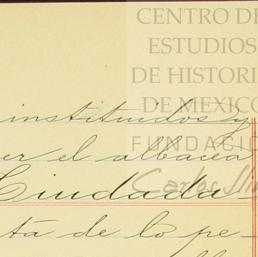 CENTRO DE
ESTUDIOS
DE HISTORI
DE MEXICO
FUNDACIÓ
Carlos Slim
instituidos y
er el albacea
Ciudada
ta de lo pe-